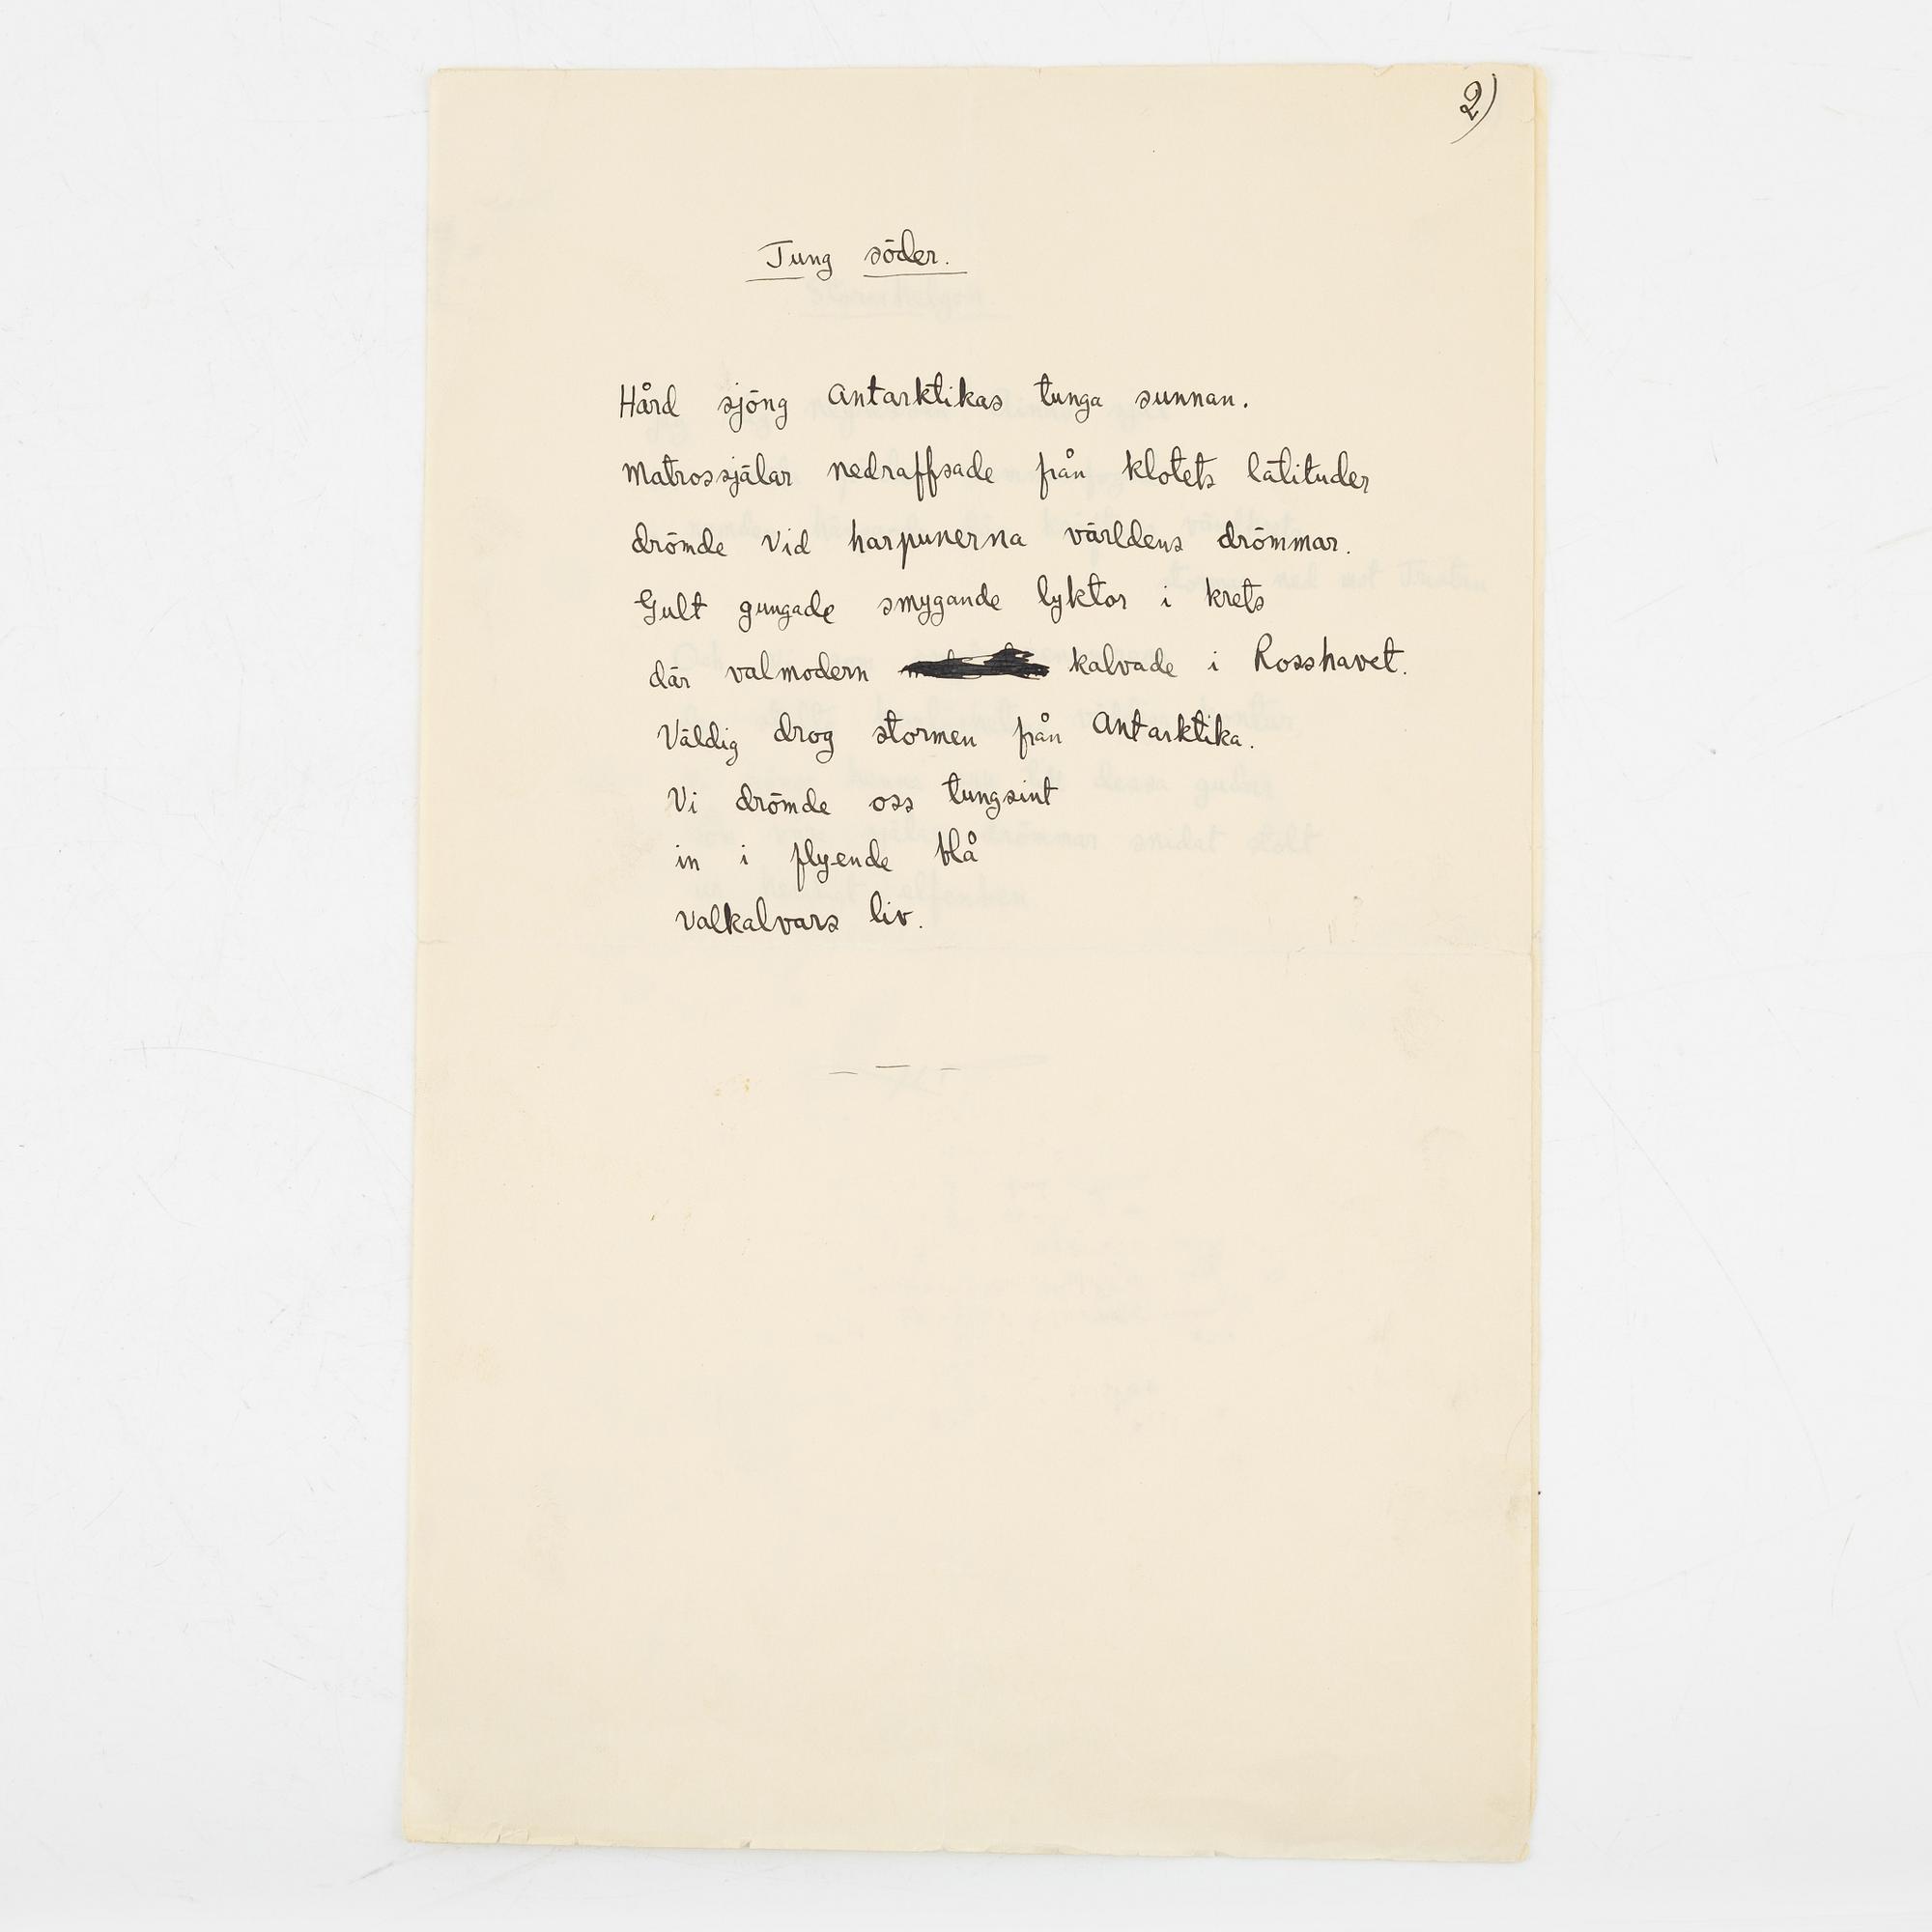 2)
Tung söder.
Hård sjöng Antarktikas tunga sunnan.
Matrossjälar nedraffsade från klotets latituder
drömde vid harpunerna världens drömmar.
Gult gungade smygande lyktor i krets
där valmodern kalvade i Rosshavet.
Väldig drog stormen från Antarktika.
Vi drömde oss tungsint
in i flyende blå
valkalvars liv.